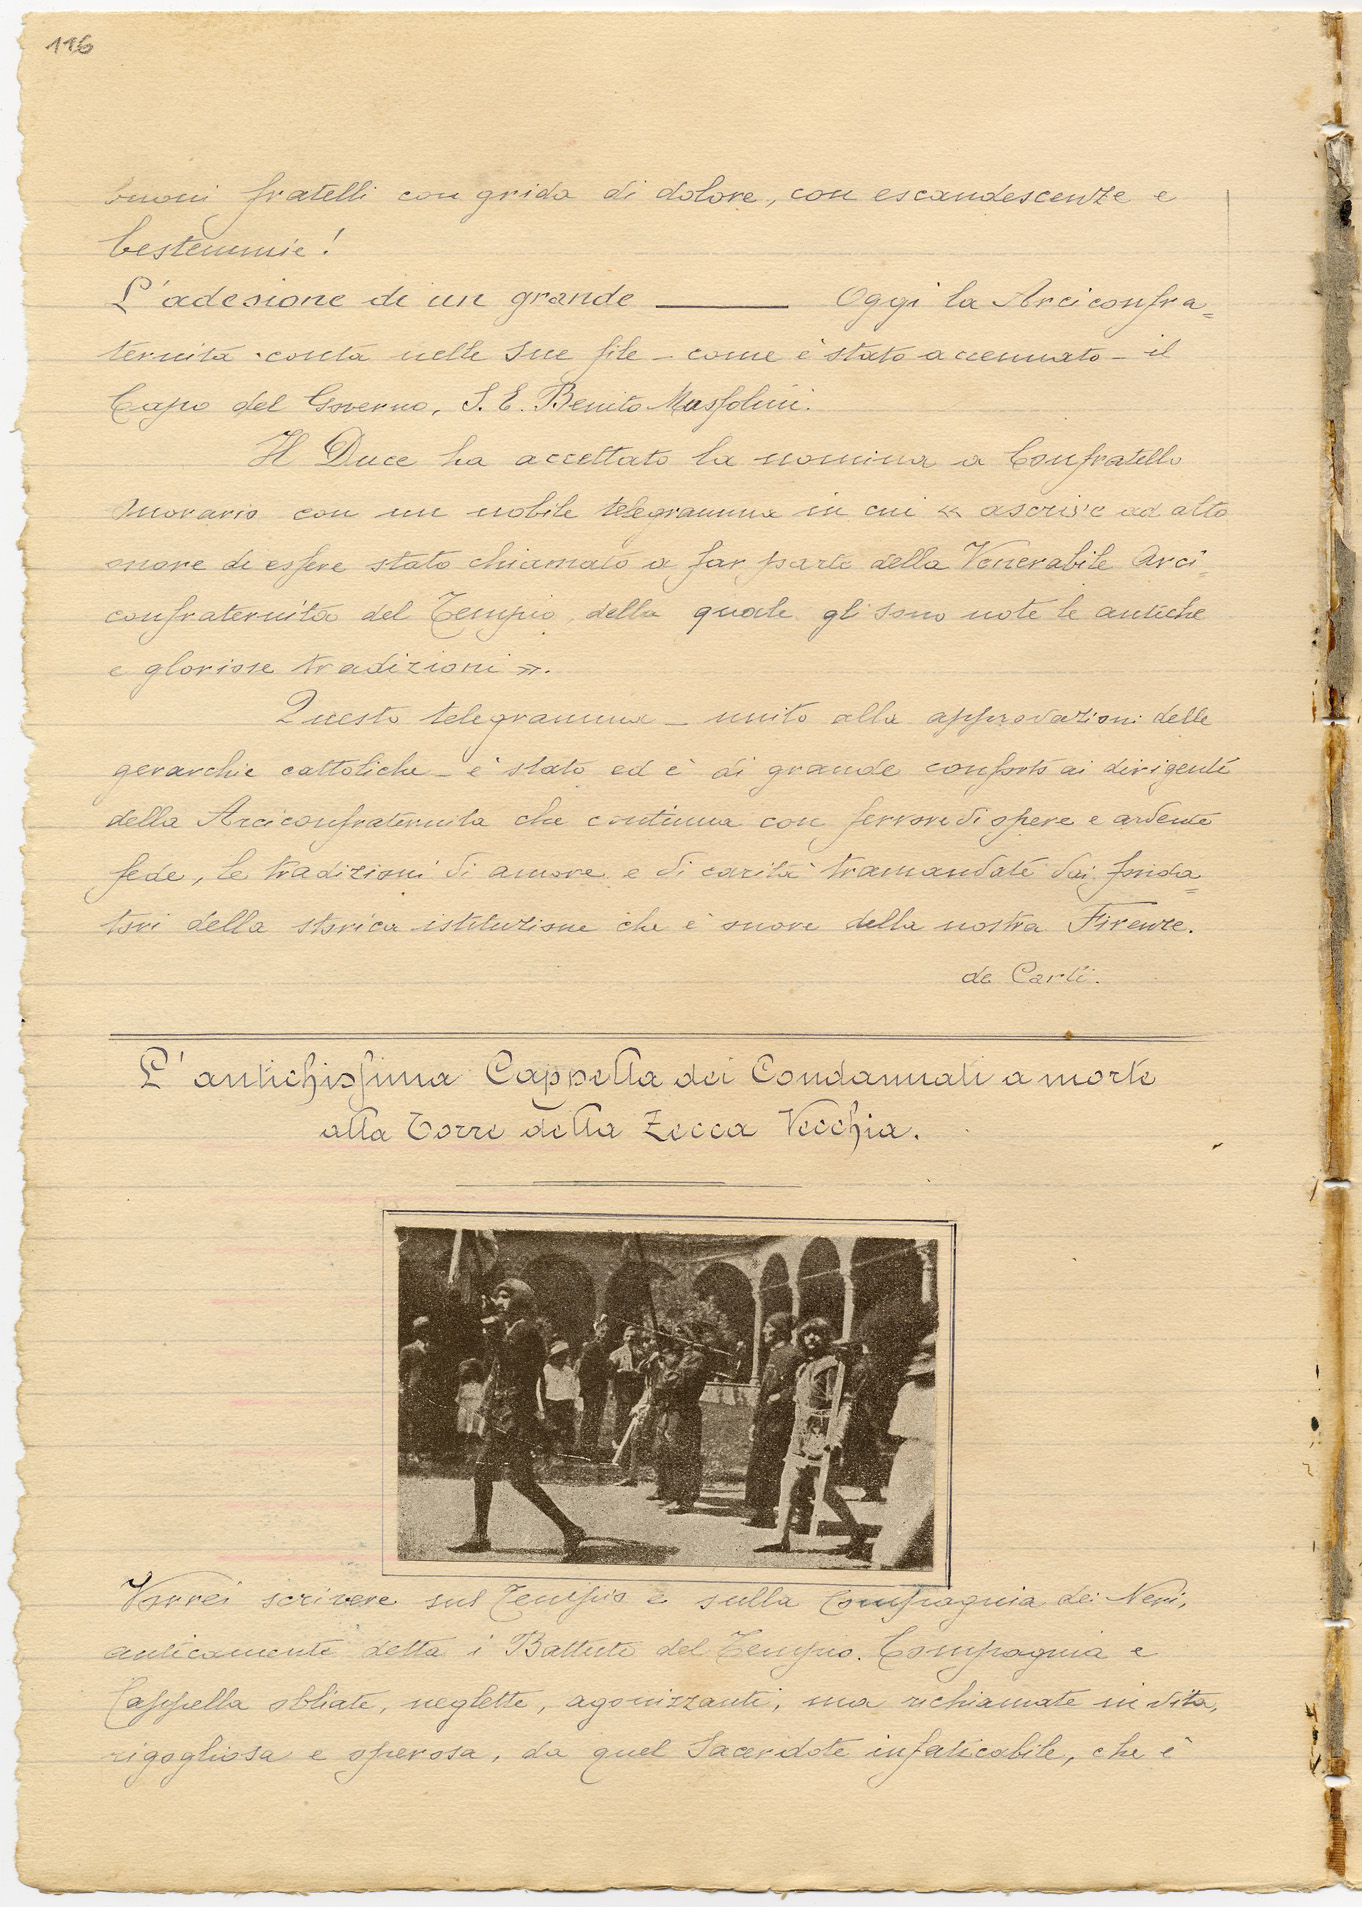 116
buoni fratelli con grida di dolore, con escandescenze e
bestemmie!
L'adesione di un grande ——— Oggi la Arciconfra=
ternità conta nelle sue file - come è stato accennato - il
Capo del Governo, S. E. Benito Mussolini.
Il Duce ha accettato la nomina a Confratello
Onorario con un nobile telegramma in cui « ascrive ad alto
onore di essere stato chiamato a far parte della Venerabile Arci=
confraternità del Tempio, della quale gli sono note le antiche
e gloriose tradizioni ».
Questo telegramma - unito alla approvazioni delle
gerarchie cattoliche - è stato ed è di grande conforto ai dirigenti
della Arciconfraternita che continua con fervore di opere e ardente
fede, le tradizioni di amore e di carità tramandate dai fonda=
tori della storica istituzione che è onore della nostra Firenze.
de Carli.
L'antichissima Cappella dei Condannati a morte
alla Torre della Zecca Vecchia.
Vorrei scrivere sul Tempio e sulla Compagnia dei Neri,
anticamente detta i Battuti del Tempio. Compagnia e
Cappella obliate, neglette, agonizzanti, ma richiamate in vita,
rigogliosa e operosa, da quel Sacerdote infaticabile, che è